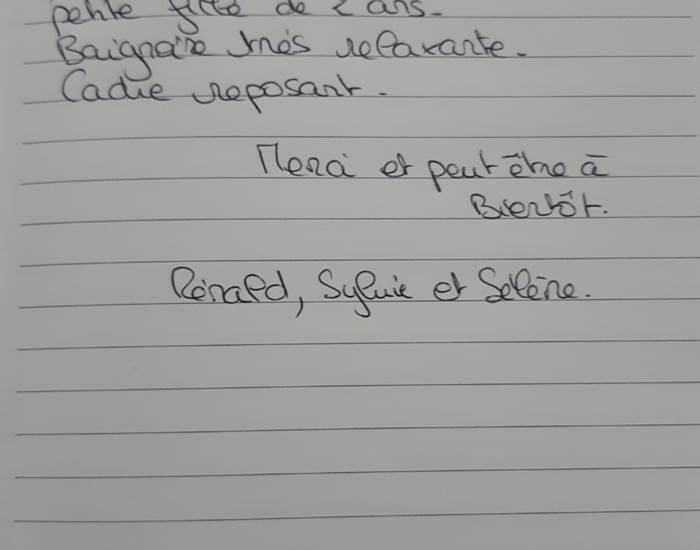 petite fille de 2 ans.
Baignoire très relaxante.
Cadre reposant.
Merci et peut être à
Bientôt.
Rénald, Sylvie et Sélène.